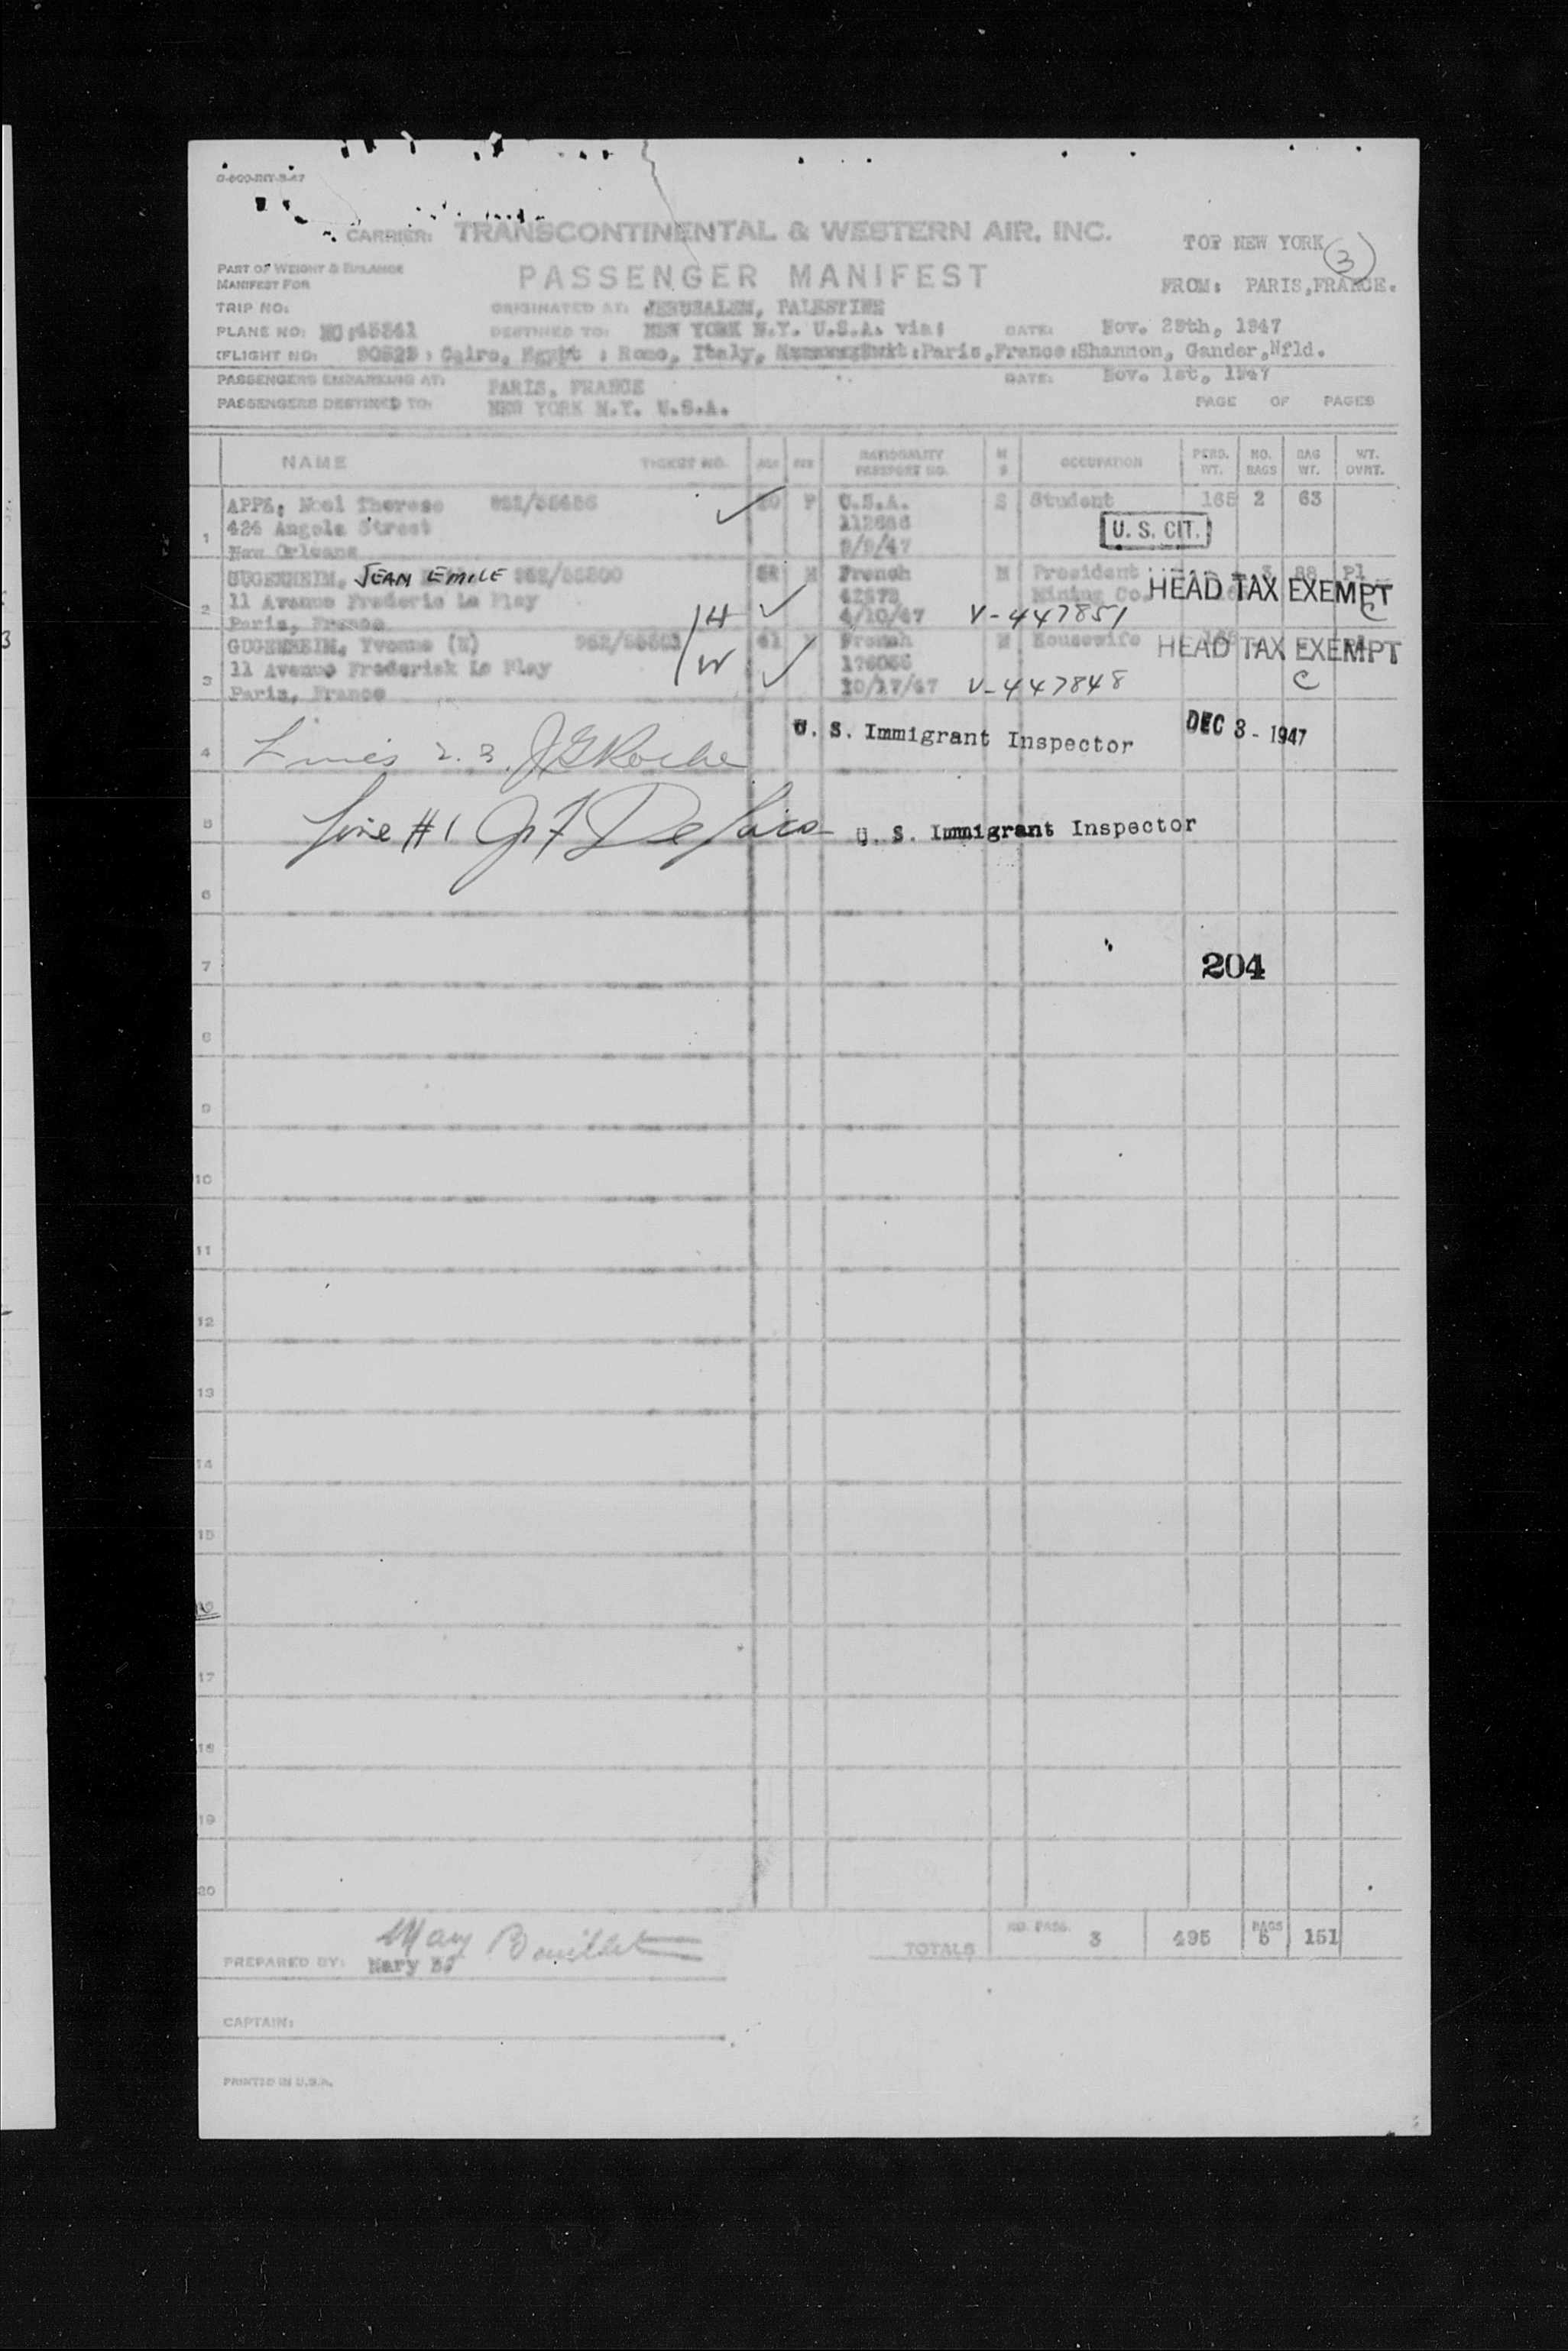 CARRIER: TRANSCONTINENTAL & WESTERN AIR, INC.
TO: NEW YORK 3
PART OF WEIGHT & BALANCE
MANIFEST FOR
PASSENGER MANIFEST
FROM: PARIS, FRANCE.
TRIP NO: ORIGINATED AT: JERUSALEM, PALESTINE
PLANE NO: NC:45341 DESTINED TO: NEW YORK N.Y. U.S.A. via: DATE: Nov. 29th, 1947
(FLIGHT NO: Cairo, Egypt : Rome, Italy, :Paris,France:Shannon, Gander,Nfld.
PASSENGERS EMBARKING AT: PARIS, FRANCE DATE: Nov. 1st, 1947
PASSENGERS DESTINED TO: NEW YORK N.Y. U.S.A. PAGE OF PAGES
NAME TICKET NO. AGE SEX NATIONALITY PASSPORT NO. M S OCCUPATION PERS. WT. NO. BAGS BAG WT. WT. OVRT.
APPE, Noel Therese 20 F U.S.A. S Student 165 2 63
424 Angela Street U. S. CIT.
1 New Orleans 9/9/47
GUGENHEIM, JEAN EMILE M French M President 3 88 Pl
11 Avenue Frederic Le Play Mining Co. HEAD TAX EXEMPT
2 Paris, France H 4/10/47 V-447851 C
GUGENHEIM, Yvonne 41 French M Housewife HEAD TAX EXEMPT
11 Avenue Frederick Le Play W 176056 C
3 Paris, France 10/17/47 V-447848
4 Lines 2. 3. J G Roche U. S. Immigrant Inspector DEC 3 - 1947
5 Line #1 U. S. Immigrant Inspector
6
7 204
8
9
10
11
12
13
14
15
16
17
18
19
20
TOTALS NO. PASS. 3 495 BAGS 5 151
PREPARED BY: Mary
CAPTAIN:
PRINTED IN U.S.A.